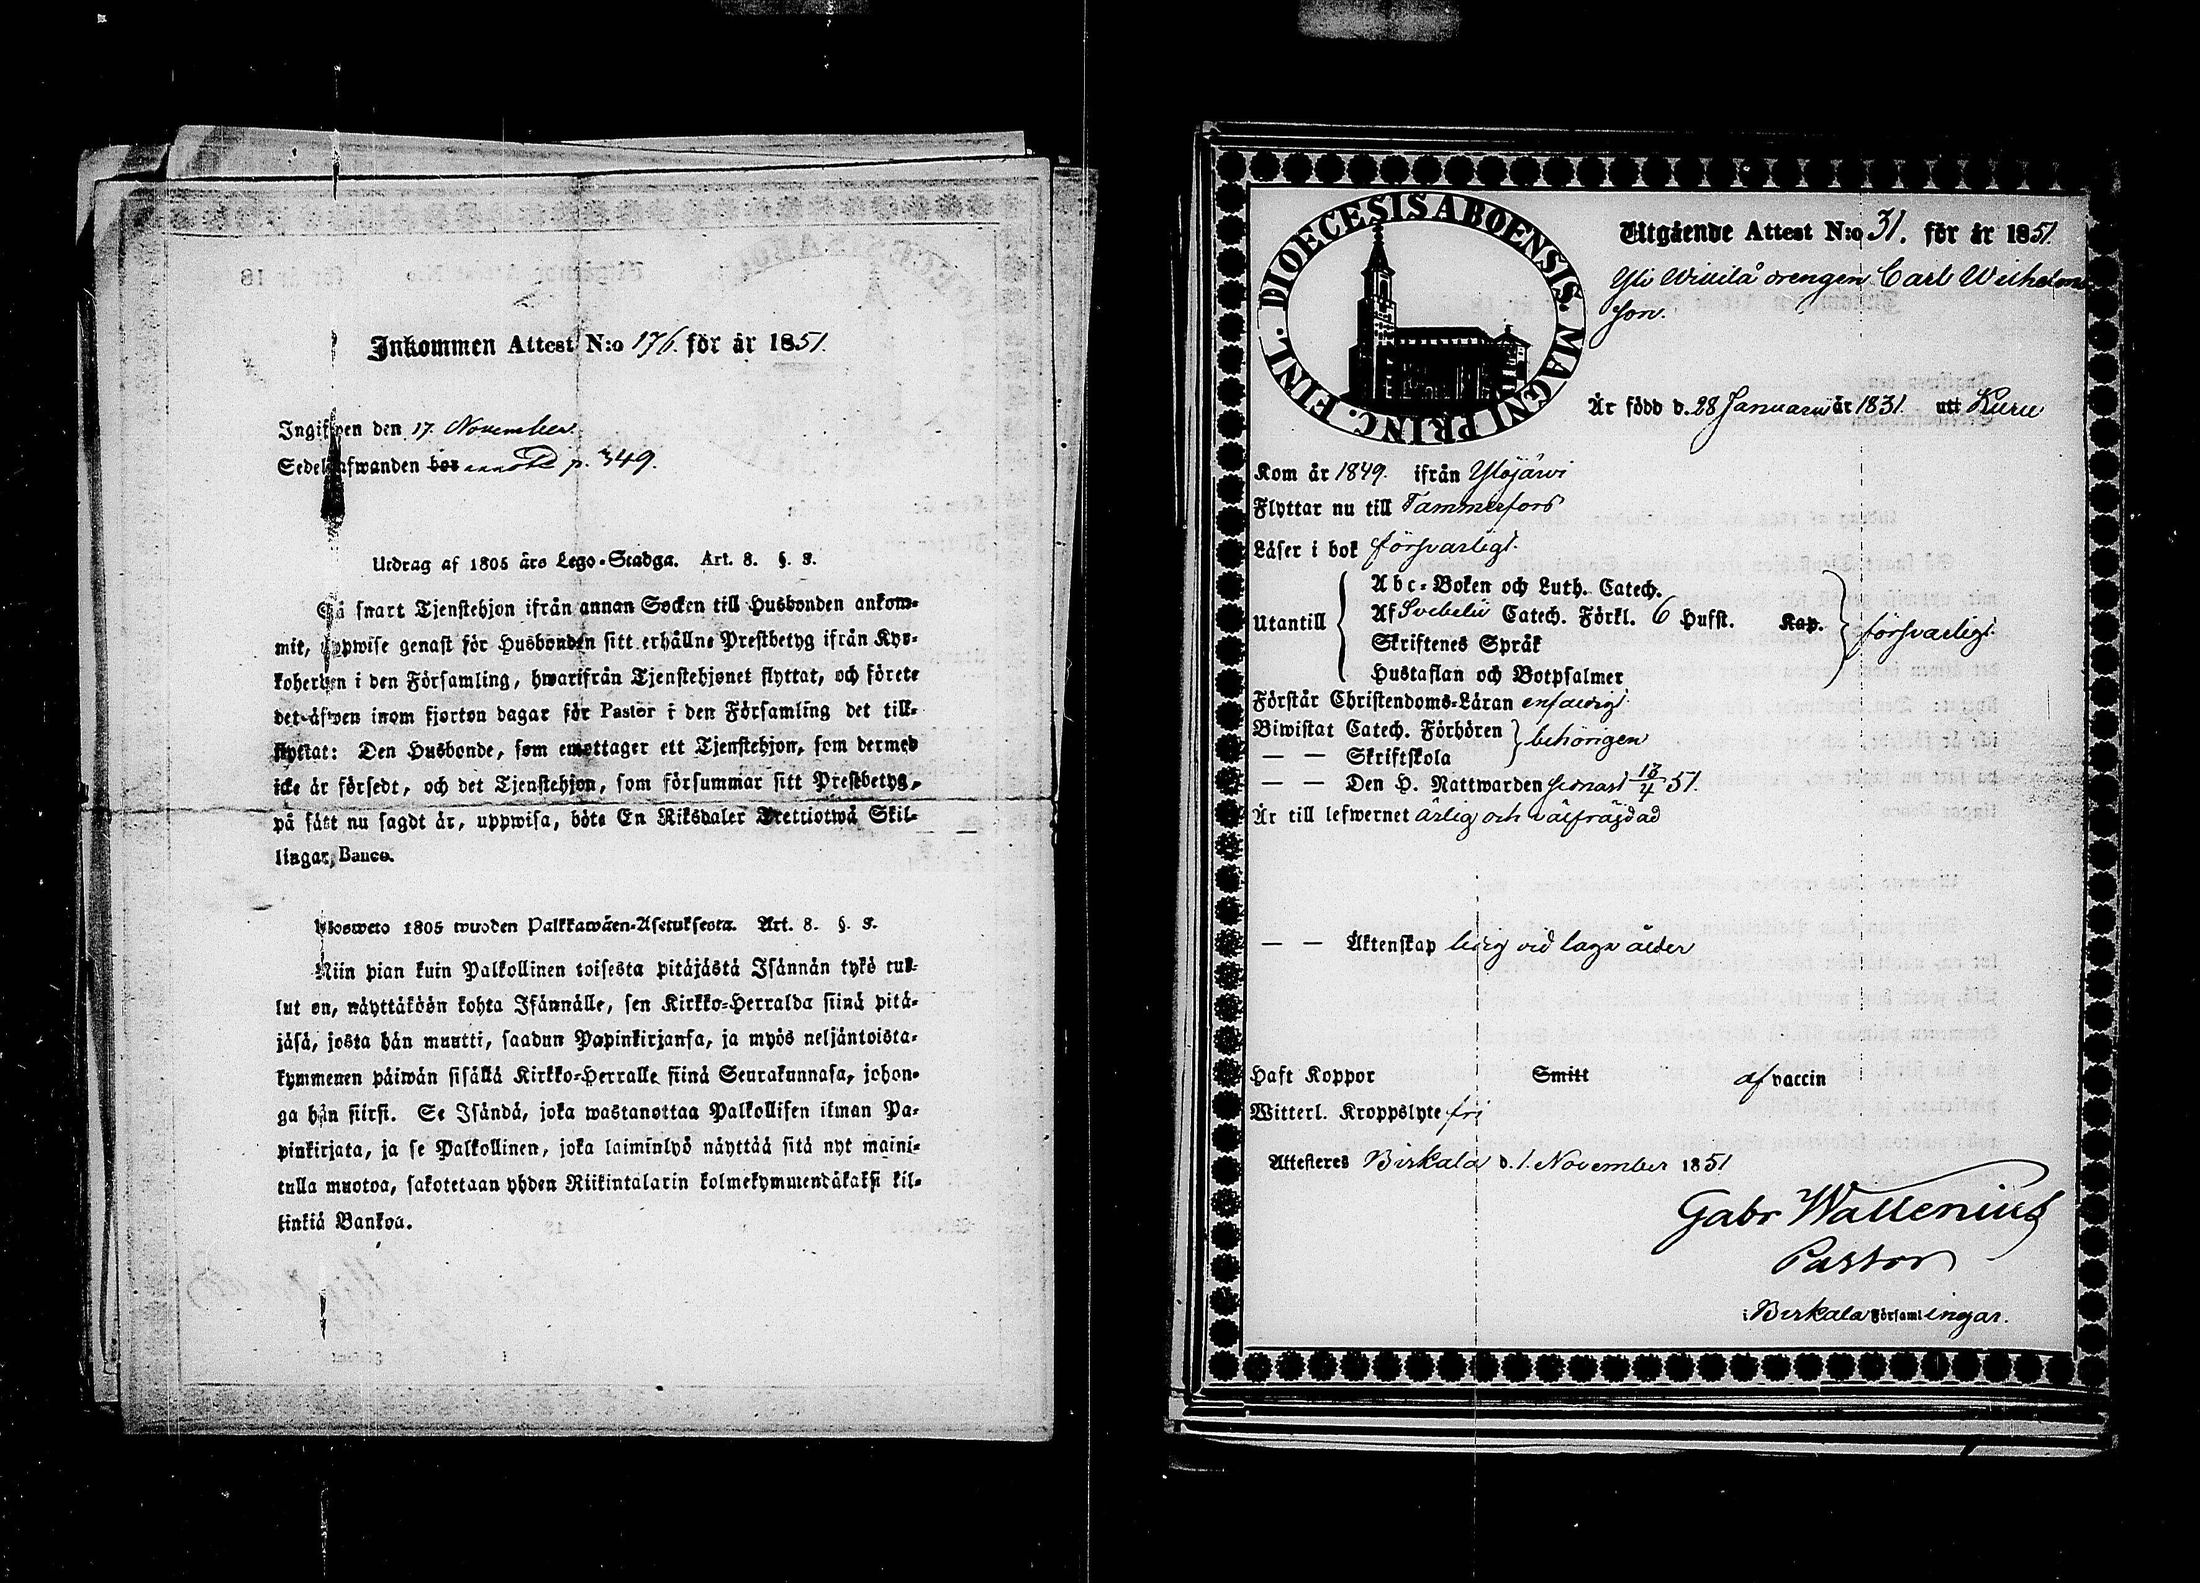 Inkommen Attest N:o 176. för år 1851.
Ingifwen den 17. November.
Sedelafwanden bor p. 349.
Utdrag af 1805 års Lego-Stadga. Art. 8. §. 8.
Så snart Tjenstehjon ifrån annan Socken till Husbonden ankom-
mit, uppwise genast för Husbonden sitt erhållne Prestbetyg ifrån Kyr-
koherden i den Församling, hwarifrån Tjenstehjonet flyttat, och förete
det äfwen inom fjorton dagar för Pastor i den Församling det till-
flyttat: Den Husbonde, som emottager ett Tjenstehjon, som dermed
icke är försedt, och det Tjenstehjon, som försummar sitt Prestbetyg,
på sätt nu sagdt är, uppwisa, böte En Riksdaler Trettiotwå Skil-
lingar, Banco.
Ulosweto 1805 wuoden Palkkawäen-Asetuksesta. Art. 8. §. 8.
Niin pian kuin Palkollinen toisesta pitäjästä Isännän tykö tul-
lut on, näyttäköön kohta Isännälle, sen Kirkko-Herralda siinä pitä-
jäsä, josta hän muutti, saadun Papinkirjansa, ja myös neljäntoista-
kymmenen päiwän sisällä Kirkko-Herralle siinä Seurakunnasa, johon-
ga hän siirsi. Se Isändä, joka wastanottaa Palkollisen ilman Pa-
pinkirjata, ja se Palkollinen, joka laiminlyö näyttää sitä nyt maini-
tulla muotoa, sakotetaan yhden Riikintalarin kolmekymmendäkaksi kil-
linkiä Bankoa.
DIOECESIS ABOENSIS. MAGNI PRINC. FINL.
Utgående Attest N:o 31. för år 1851.
Yli Willilä drengen Carl Wilhelms
son.
Är född d. 28 Januarii år 1831. utt Kuru
Kom år 1849. ifrån Ylöjärvi
Flyttar nu till Tammerfors
Läser i bok försvarligt.
Utantill
Abc-Boken och Luth. Catech.
Af Svebelii Catech. Förkl. 6 Hufst. Kap.
Skriftenes Språk
Hustaflan och Botpsalmer
försvarligt.
Förstår Christendoms-Läran enfaldigt.
Biwistat Catech. Förhören
— — Skriftskola
behörigen
— — Den H. Nattwarden senast 13/4 51.
Är till lefwernet ärlig och välfräjdad
— — Äktenskap ledig vid laga ålder
Haft Koppor Smitt af vaccin
Witterl. Kroppslyte fri
Attesteres Birkala d. 1. November 1851
Gabr Wallenius
Pastor
i Birkala Församlingar.